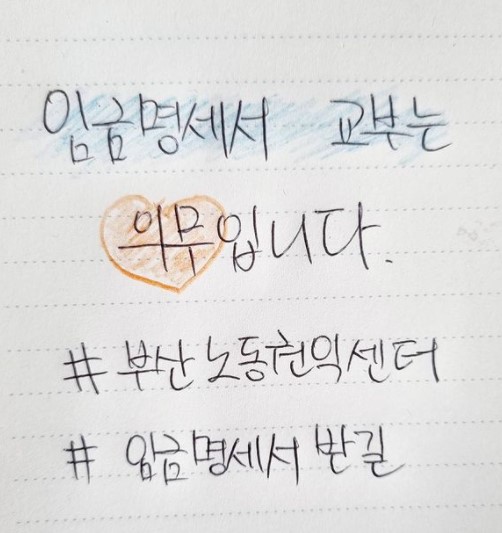 임금명세서 교부는
의무입니다.
# 부산노동권익센터
# 임금명세서 받길